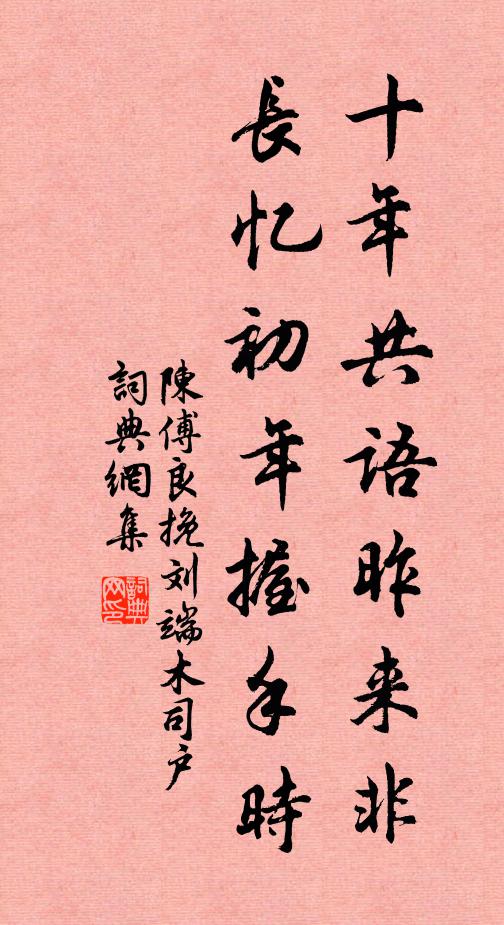 十年共语昨来非
長忆初年握手時
陳傅良挽刘端木司户
詞典網集
詞典網印